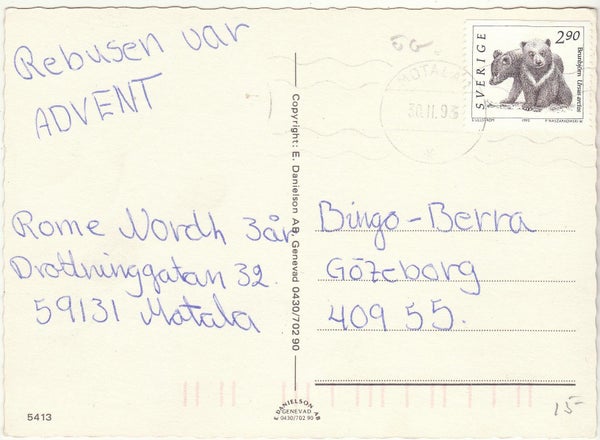 Rebusen var
ADVENT
Rome Nordh 3år
Drottninggatan 32.
59131 Motala
5413
Copyright: E. Danielson AB, Genevad 0430/702 90
E. DANIELSON AB
GENEVAD
0430/702 90
MOTALA
30.11.93
SVERIGE
2.90
Brunbjörn Ursus arctos
1993
Bingo-Berra
Göteborg
409 55.
15-